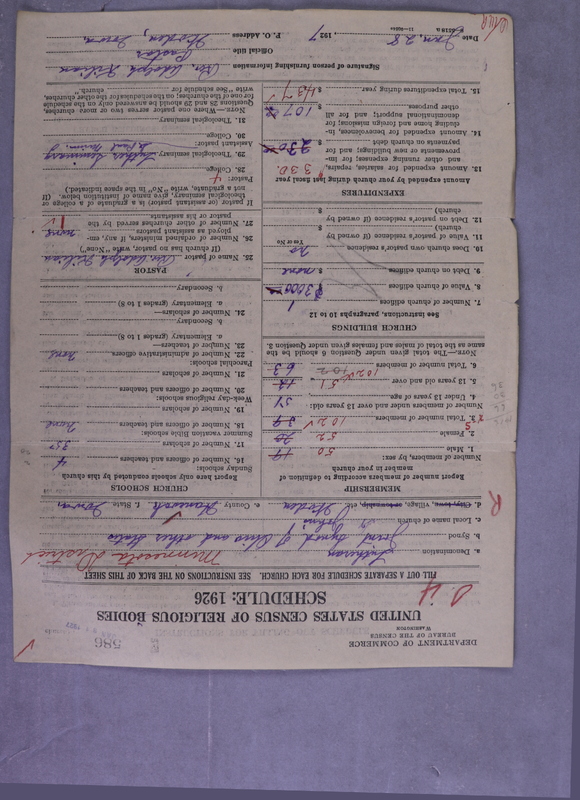 DEPARTMENT OF COMMERCE
BUREAU OF THE CENSUS
WASHINGTON
586
UNITED STATES CENSUS OF RELIGIOUS BODIES
SCHEDULE: 1926
FILL OUT A SEPARATE SCHEDULE FOR EACH CHURCH. SEE INSTRUCTIONS ON THE BACK OF THIS SHEET
a. Denomination Lutheran
Minnesota District
b. Synod Joint Synod of Ohio and other States
c. Local name of church St. Johns
d. City, town, village, or township, etc. Woden e. County Hancock f. State Iowa
MEMBERSHIP
Report number of members according to definition of member in your church
Number of members, by sex:
1. Male 50
2. Female 52
3. Total number of members 102
Number of members under and over 13 years old:
4. Under 13 years of age
5. 13 years old and over 51
6. Total number of members 102
NOTE.—The total given under Question 6 should be the
same as the total of males and females given under Question 3.
CHURCH BUILDINGS
See instructions, paragraphs 10 to 12
7. Number of church edifices 1
8. Value of church edifices $ 3000
9. Debt on church edifices $ none
10. Does church own pastor's residence no
Yes or No
11. Value of pastor's residence (if owned by
church) $
12. Debt on pastor's residence (if owned by
church) $
EXPENDITURES
Amount expended by your church during last fiscal year
13. Amount expended for salaries, repairs,
and other running expenses; for im-
provements or new buildings; and for
payments on church debt $ 330
14. Amount expended for benevolences, in-
cluding home and foreign missions; for
denominational support; and for all
other purposes $ 107
15. Total expenditures during year $ 437
CHURCH SCHOOLS
Report here only schools conducted by this church
Sunday schools:
16. Number of officers and teachers 4
17. Number of scholars 35
Summer vacation Bible schools:
18. Number of officers and teachers none
19. Number of scholars
Week-day religious schools:
20. Number of officers and teachers
21. Number of scholars
Parochial schools:
22. Number of administrative officers none
23. Number of teachers—
a. Elementary (grades 1 to 8)
b. Secondary
24. Number of scholars—
a. Elementary (grades 1 to 8)
b. Secondary
PASTOR
25. Name of pastor Rev. Adolph Kilian
(If church has no pastor, write "None")
26. Number of ordained ministers, if any, em-
ployed as assistant pastors none
27. Number of other churches served by the
pastor or his assistants 1
If pastor (or assistant pastor) is a graduate of a college or
theological seminary, give name of institution below. (If
not a graduate, write "No" in the space indicated.)
Pastor:
28. College
29. Theological seminary Luther Seminary
St Paul Minn.
Assistant pastor:
30. College
31. Theological seminary
NOTE.—Where one pastor serves two or more churches,
Questions 25 and 29 should be answered only on the schedule
for one of the churches; on the schedules for the other churches,
write "See schedule for church."
Signature of person furnishing information Rev. Adolph Kilian
Official title Pastor
Date Jan. 28, 1927 P. O. Address Woden, Iowa